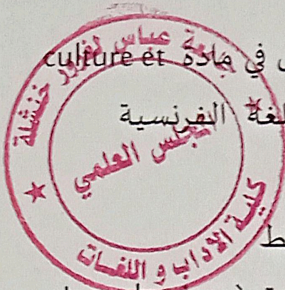 في مادة culture et
لغة الفرنسية
جامعة عباس لغرور خنشلة
المجلس العلمي
كلية الآداب و اللغات